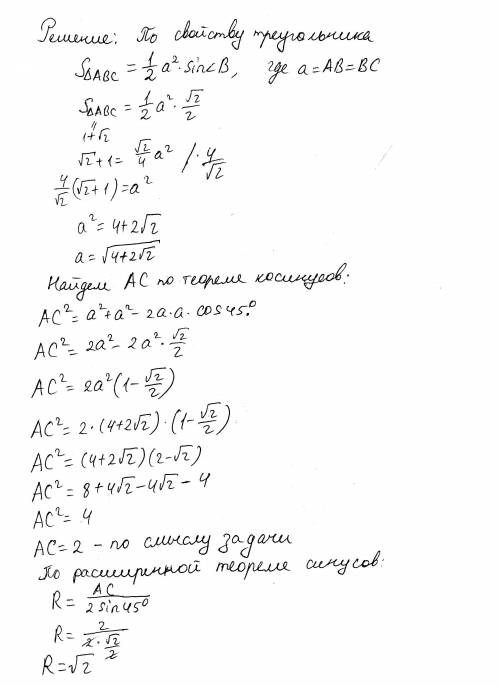 Решение: По свойству треугольника
S△ABC = 1/2 a²·sin∠B, где a=AB=BC
S△ABC = 1/2 a² · √2/2
"
1+√2
√2+1 = √2/4 a² / · 4/√2
4/√2 (√2+1) = a²
a² = 4+2√2
a = √(4+2√2)
Найдем AC по теореме косинусов:
AC² = a²+a²-2a·a·cos45°
AC² = 2a²-2a²·√2/2
AC² = 2a²(1-√2/2)
AC² = 2·(4+2√2)·(1-√2/2)
AC² = (4+2√2)(2-√2)
AC² = 8+4√2-4√2-4
AC² = 4
AC = 2 - по смыслу задачи
По расширенной теореме синусов:
R = AC/(2sin45°)
R = 2/(2·√2/2)
R = √2